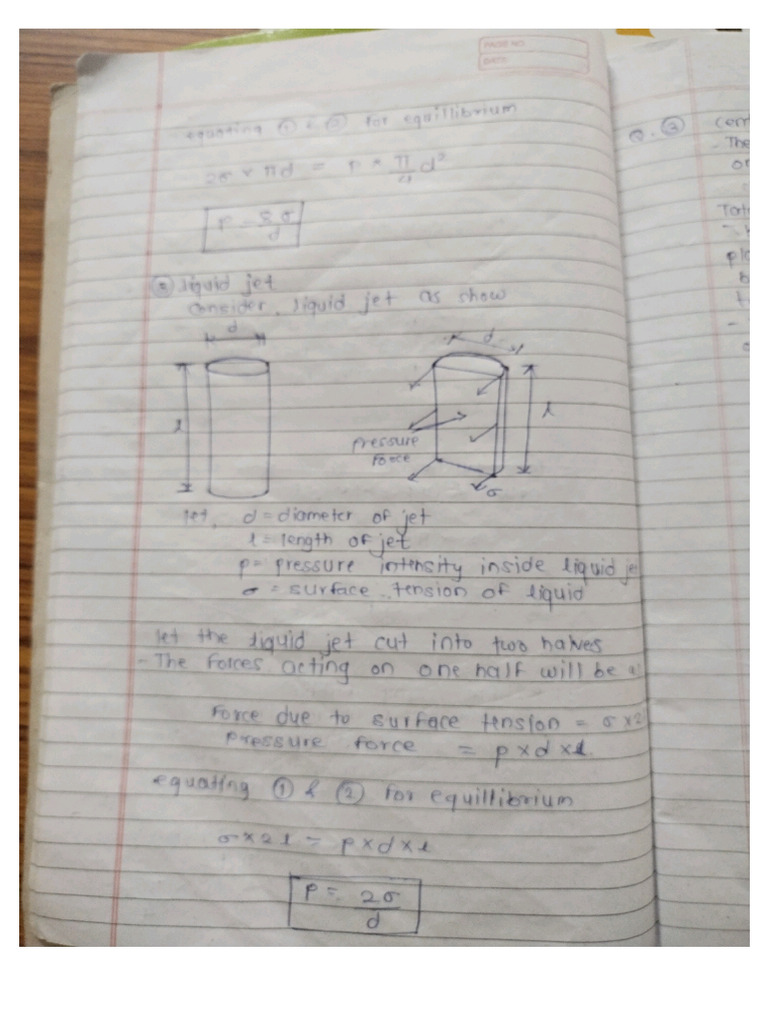 PAGE NO.
DATE
equating ① & ② for equillibrium
2σ × πd = P × π/4 d²
P = 8σ/d
③ liquid jet
consider, liquid jet as show
d
d
l
l
pressure
force
σ
let, d = diameter of jet
l = length of jet
p = pressure intensity inside liquid je
σ = surface tension of liquid
let the liquid jet cut into two halves
- The forces acting on one half will be a
Force due to surface tension = σ × 2
pressure force = p × d × l.
equating ① & ② for equillibrium
σ × 2l = p × d × l
P = 2σ/d
Q. ③
- The